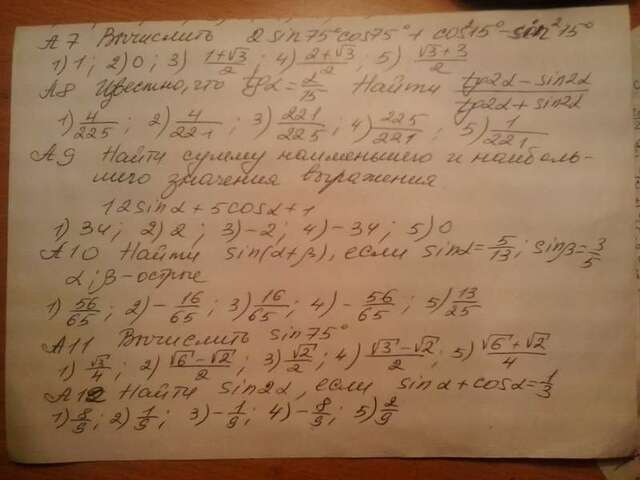 А7 Вычислить 2 sin75°cos75° + cos²15° - sin²15°
1) 1; 2) 0; 3) (1+√3)/2; 4) (2+√3)/2; 5) (√3+3)/2
А8 Известно, что tgα = 2/15 Найти (tg2α - sin2α)/(tg2α + sin2α)
1) 4/225; 2) 4/221; 3) 221/225; 4) 225/221; 5) 1/221
А9 Найти сумму наименьшего и наиболь-
шего значения выражения
12sinα + 5cosα + 1
1) 34; 2) 2; 3) -2; 4) -34; 5) 0
А10 Найти sin(α+β), если sinα = 5/13; sinβ = 3/5
α; β - острые
1) 56/65; 2) -16/65; 3) 16/65; 4) -56/65; 5) 13/25
А11 Вычислить sin75°
1) √3/4; 2) (√6-√2)/2; 3) √2/2; 4) (√3-√2)/2; 5) (√6+√2)/4
А12 Найти sin2α, если sinα + cosα = 1/3
1) 8/9; 2) 1/9; 3) -1/9; 4) -8/9; 5) 2/9